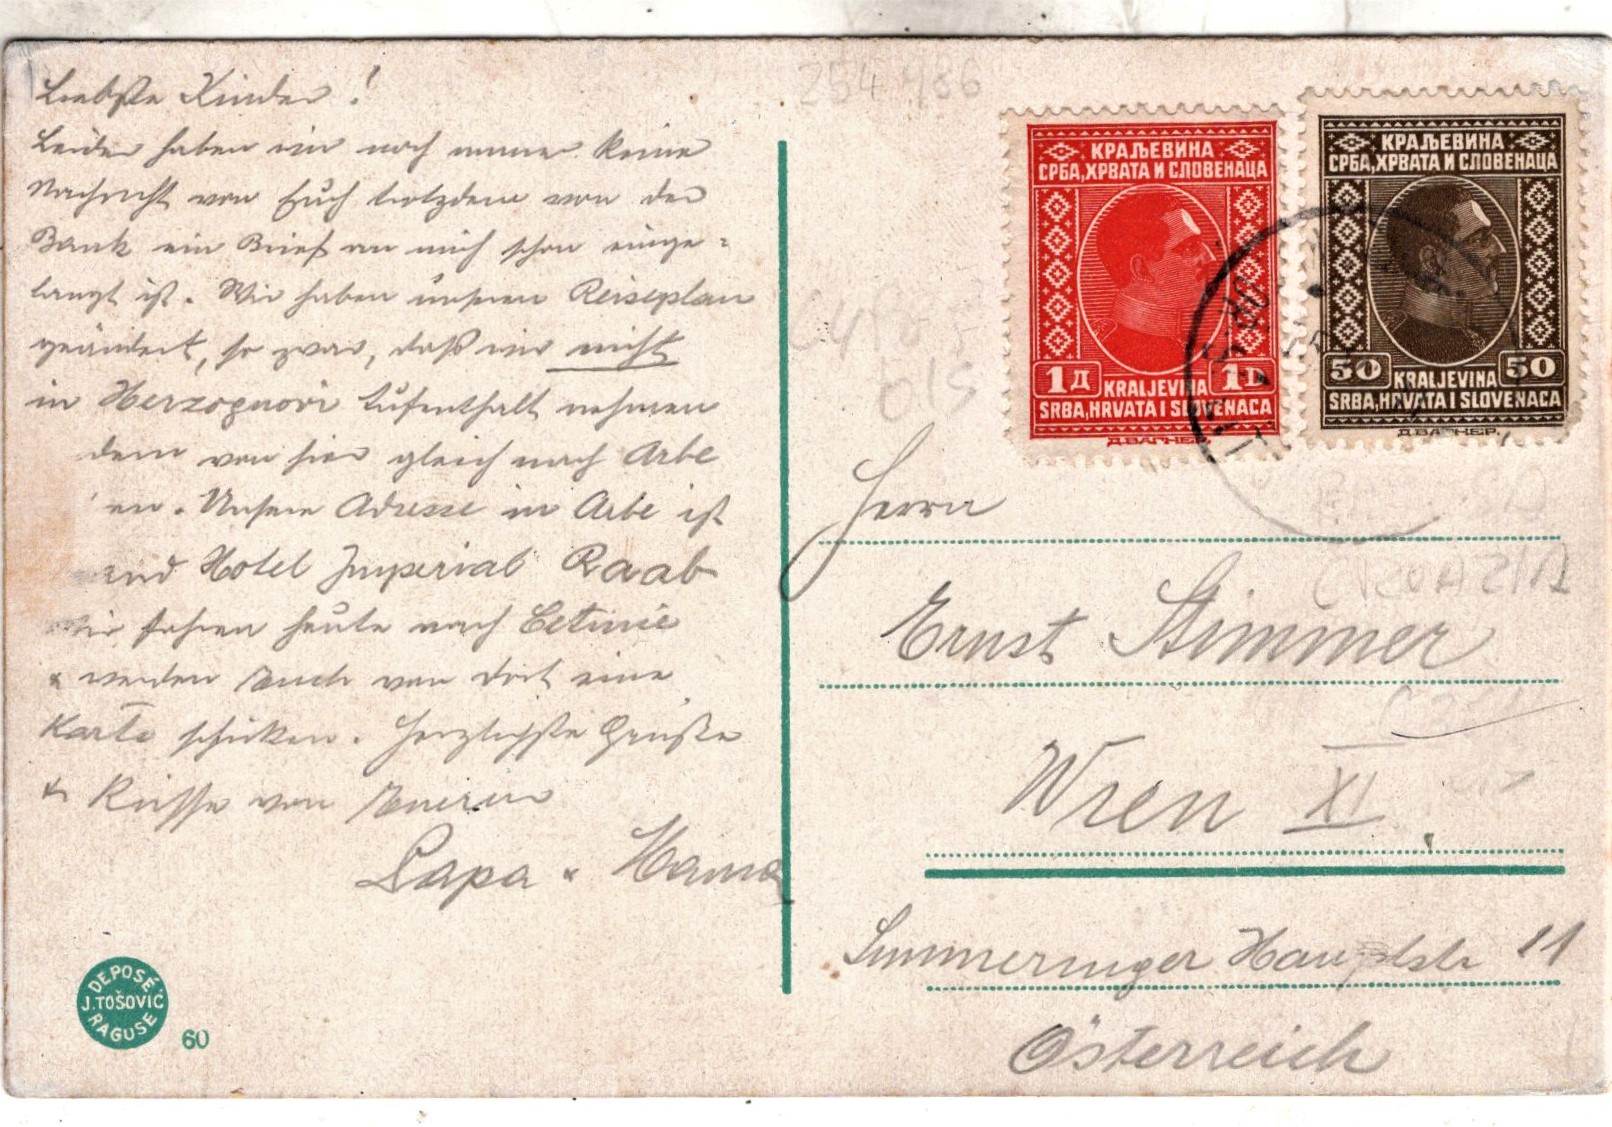 Liebste Kinder!
Leider haben wir noch immer keine
Nachricht von Euch trotzdem von der
Bank ein Brief an mich schon einge=
langt ist. Wir haben unseren Reiseplan
geändert, so zwar, daß wir nicht
in Herzognovi Aufenthalt nehmen
dern von hier gleich nach Arbe
en. Unsere Adresse in Arbe ist
Hotel Imperial Raab
Wir fahren heute nach Cetinie
& werden Euch von dort eine
Karte schicken. Herzlichste Grüße
& Küsse von Eueren
Papa & Mama
DEPOSÉ
J. TOŠOVIĆ
RAGUSE
60
254 486
КРАЉЕВИНА
СРБА, ХРВАТА И СЛОВЕНАЦА
1 Д 1 Д
KRALJEVINA
SRBA, HRVATA I SLOVENACA
Д.ВАГНЕР.
КРАЉЕВИНА
СРБА, ХРВАТА И СЛОВЕНАЦА
50 50
KRALJEVINA
SRBA, HRVATA I SLOVENACA
Д.ВАГНЕР.
Herrn
Ernst Stimmer
Wien XI.
Simmeringer Hauptstr 11
Österreich